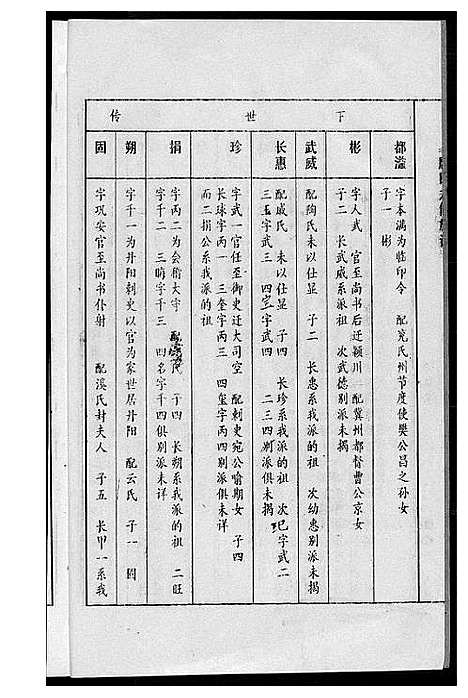 下世传
都滥
字本满为临印令 配兖氏州节度使樊公昌之孙女
子一 彬
彬
字人武 官至尚书后迁颍川 配冀州都督曹公京女
子二 长武威系派祖 次武德别派未揭
武威
配陶氏未以仕显 子二 长惠系我派的祖 次幼惠别派未揭
长惠
配戚氏 未以仕显 子四 长珍系我派的祖 次玘字武二
三玉字武三 四宝字武四 二三四别派俱未揭
珍
字武一官任至御史迁大司空 配刺吏宛公喻期女 子四
长球字丙一 三奎字丙三 四玺字丙四别派俱未详
而二捐公系我派的祖
捐
字丙二为会稽太守 氏 子四 长朔系我派的祖 二旺
字千二 三晦字千三 四名字千四俱别派未详
朔
字千一为丹阳刺史以官为家世居丹阳 配云氏 子一 固
固
字巩安官至尚书仆射 配溪氏封夫人 子五 长甲一系我